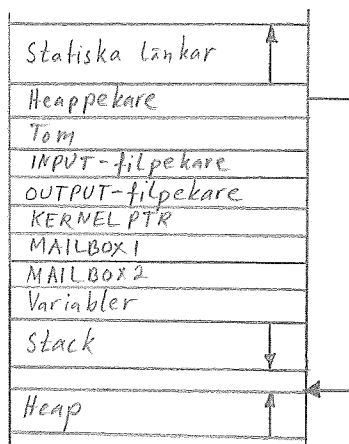 Statiska länkar
Heappekare
Tom
INPUT-filpekare
OUTPUT-filpekare
KERNEL PTR
MAILBOX1
MAILBOX2
Variabler
Stack
Heap